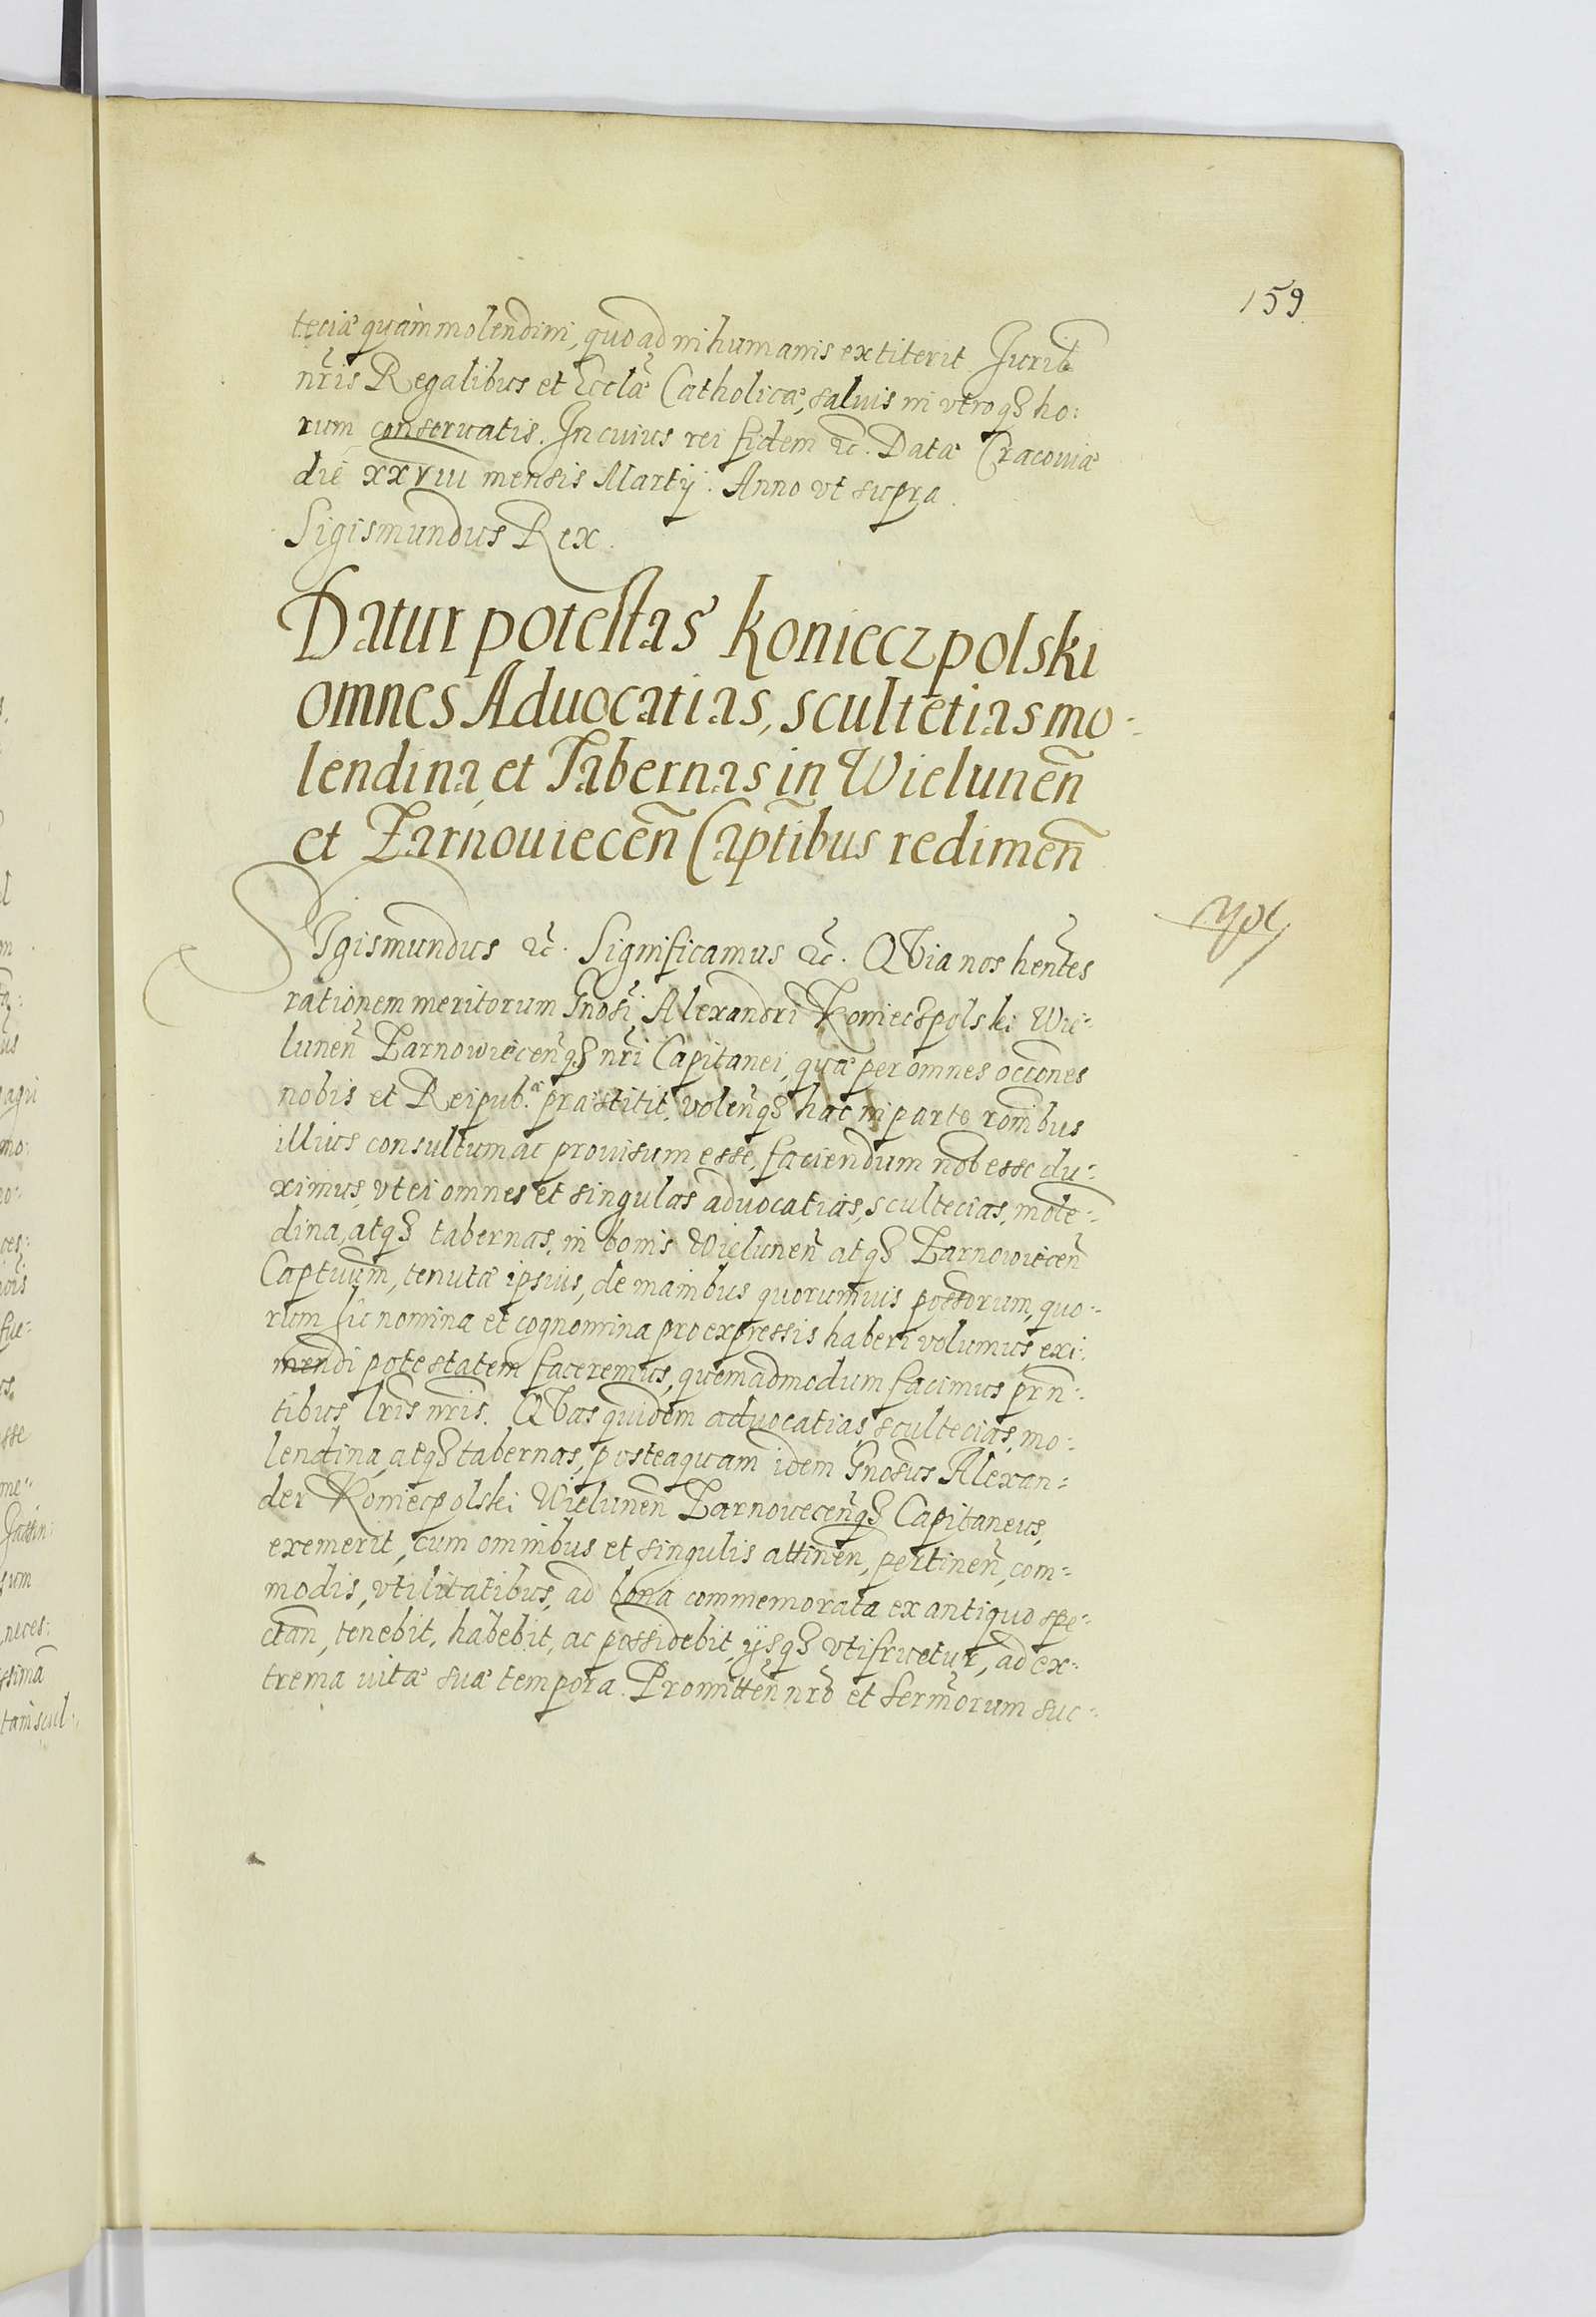 159.
teciæ quam molendini, quoad in humanis extiterit Jurib
nr̃is Regalibus et Eccl̃æ Catholicæ, saluis in vtroqȝ ho:
rum conseruatis. In cuius rei fidem ꝛc̃. Datæ Cracouiæ
die xxviii mensis Martij. Anno vt supra.
Sigismundus Rex.
Datur potestas Konieczpolski
omnes Aduocatias, scultetias mo-
lendina et Tabernas in Wielunen̄
et Zarnouiecen̄ Capt̄ibus redimen̄
Sigismundus ꝛc̃. Significamus ꝛc̃. QVia nos hen̄tes
rationem meritorum Gnosi Alexandri Koniecspolski Wie-
lunen̄ Zarnowiecen̄qȝ nr̄i Capitanei, quæ per omnes occōnes
nobis et Reipub.ᵃ præstitit, volen̄qȝ hac in parte rōnibus
illius consultum ac prouisum esse, faciendum nob esse du-
ximus, vt ei omnes et singulas aduocatias, scultecias, mole-
dina, atqȝ tabernas, in bonis Wielunen̄ atqȝ Zarnowiecen̄
Captuum, tenutæ ipsius, de manibus quorumuis possōrum, quo-
rum hic nomina et cognomina pro expressis haberi volumus, exi-
mendi potestatem faceremus, quemadmodum facimus pr̄n-
tibus lr̄is nr̄is. QVas quidem aduocatias scultecias, mo-
lendina, atqȝ tabernas, posteaquam idem Gnosus Alexan-
der Koniecpolski Wielunen̄ Zarnouecen̄qȝ Capitaneus,
exemerit, cum omnibus et singulis attinen̄, pertinen̄, com-
modis, vtilitatibus, ad bona commemorata ex antiquo spe-
ctan̄, tenebit, habebit, ac possidebit, ijsqȝ vtifruetur, ad ex-
trema uitæ suæ tempora. Promitten̄ nr̄o et Serm̄orum suc-